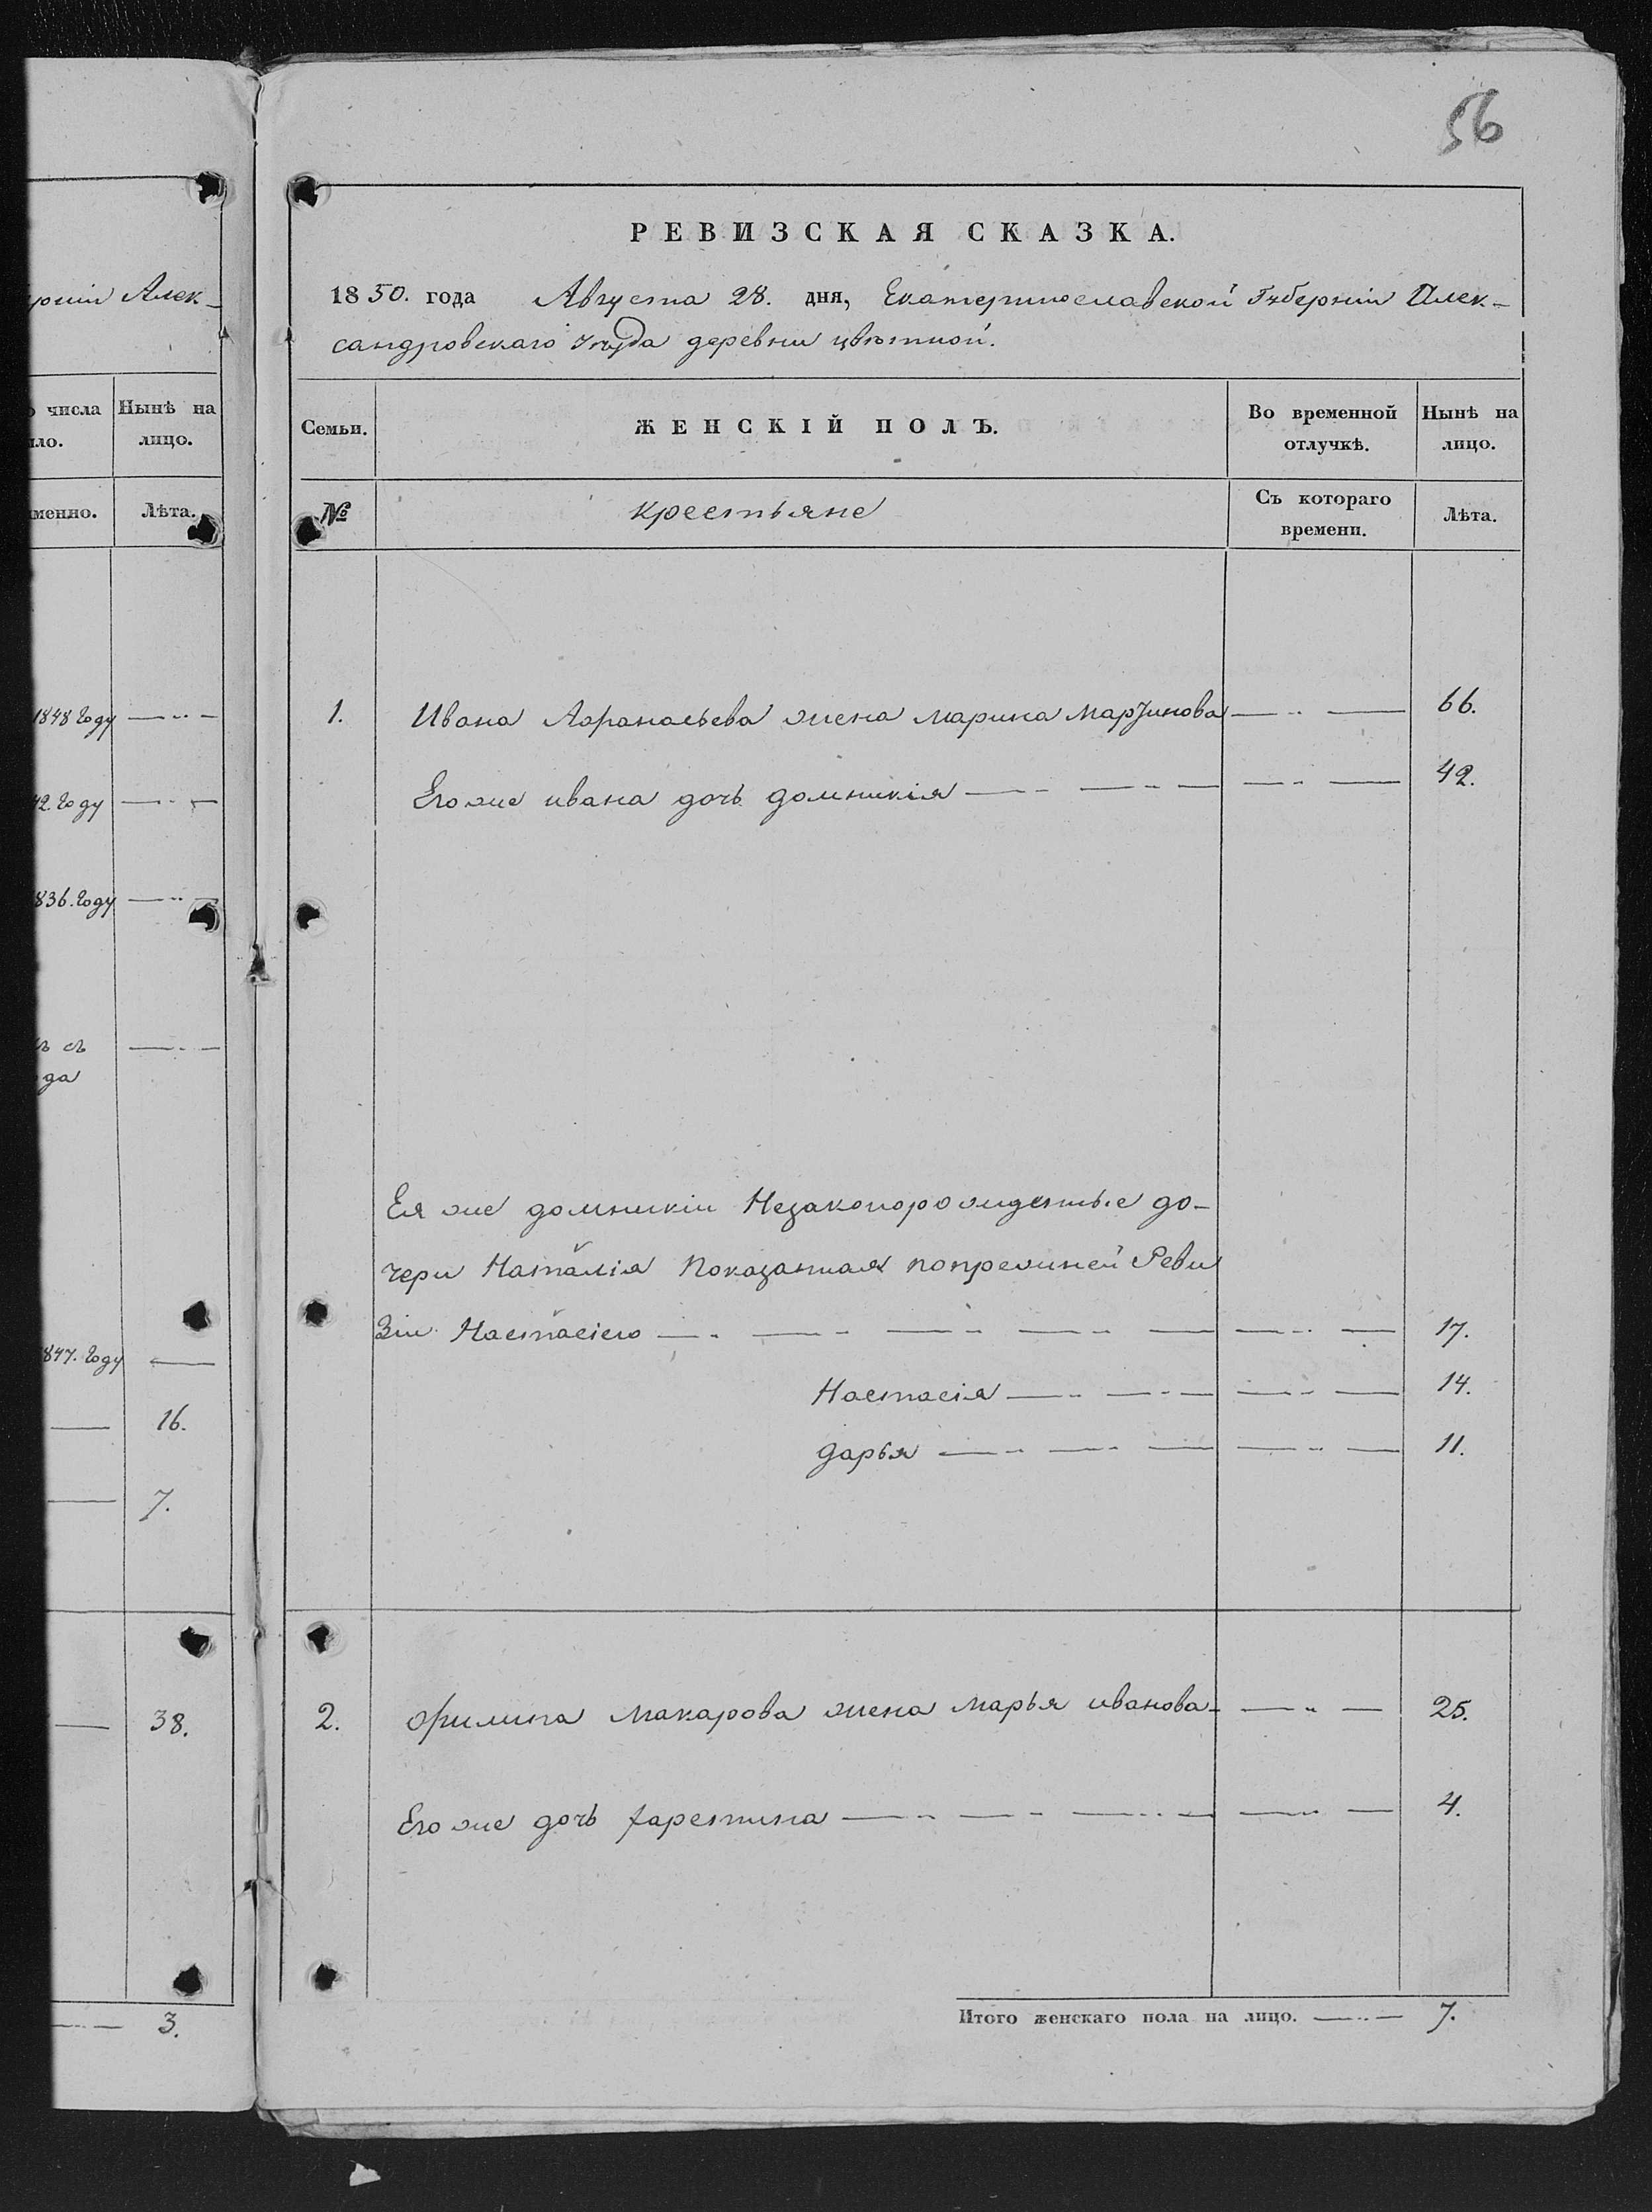 56
рніи Алек-
числа Нынѣ на
ло. лицо.
менно. Лѣта.
1848 году
42. году
836. году
ъ съ
да
847. году
16.
7.
38.
3.
РЕВИЗСКАЯ СКАЗКА.
1850. года Августа 28. дня, Екатеринославской Губерніи Алек-
сандровскаго уезда деревни цвѣтной.
Семьи. ЖЕНСКІЙ ПОЛЪ. Во временной отлучкѣ. Нынѣ на лицо.
№ крестьяне Съ котораго времени. Лѣта.
1. Ивана Афанасьева жена марина мартинова 66.
Его же ивана дочь домникія 42.
Ея же домникіи Незаконорожденные до-
чери Наталія Показанная попрежней Реви
Зіи Настасіею 17.
Настасія 14.
дарья 11.
2. филипа макарова жена марья иванова 25.
Его же дочь 4.
Итого женскаго пола на лицо. 7.